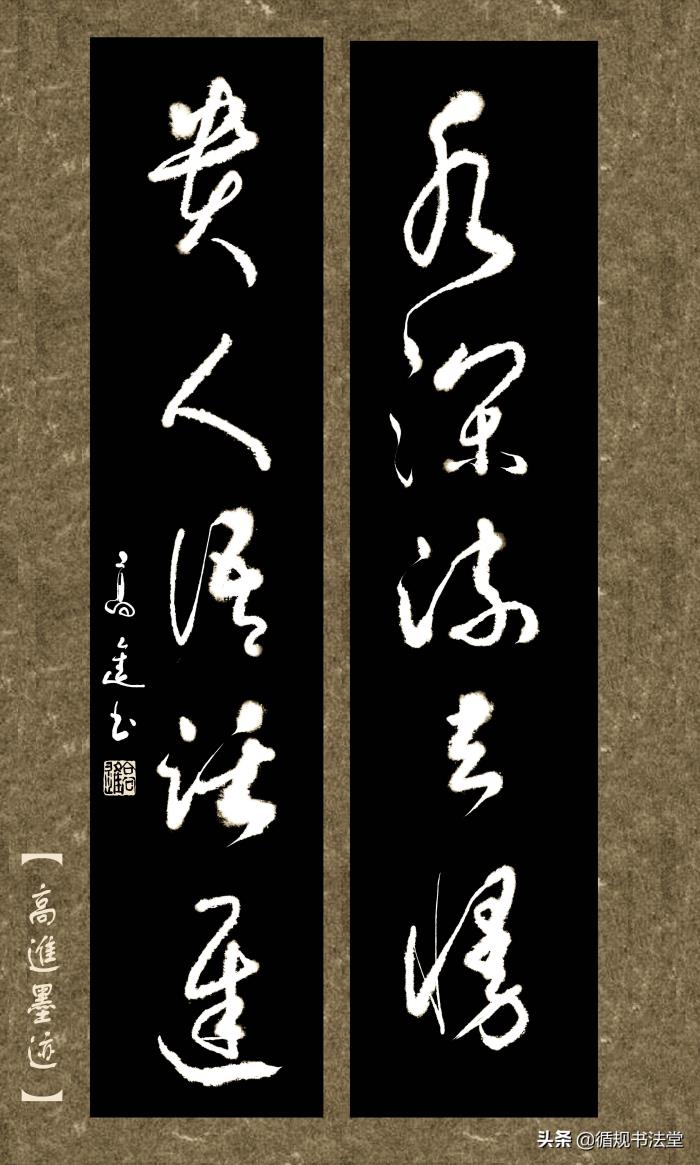 水深流去慢
贵人语话迟
高進书
【高進墨迹】
头条 @循规书法堂